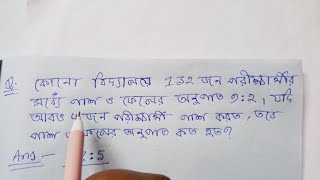 Q: কোনো বিদ্যালয়ে 132 জন পরীক্ষার্থীর
মধ্যে পাশ ও ফেলের অনুপাত 9:2, যদি
আরও জন পরীক্ষার্থী পাশ করত, তবে
পাশ ও ফেলের অনুপাত কত হত?
Ans :- : 5